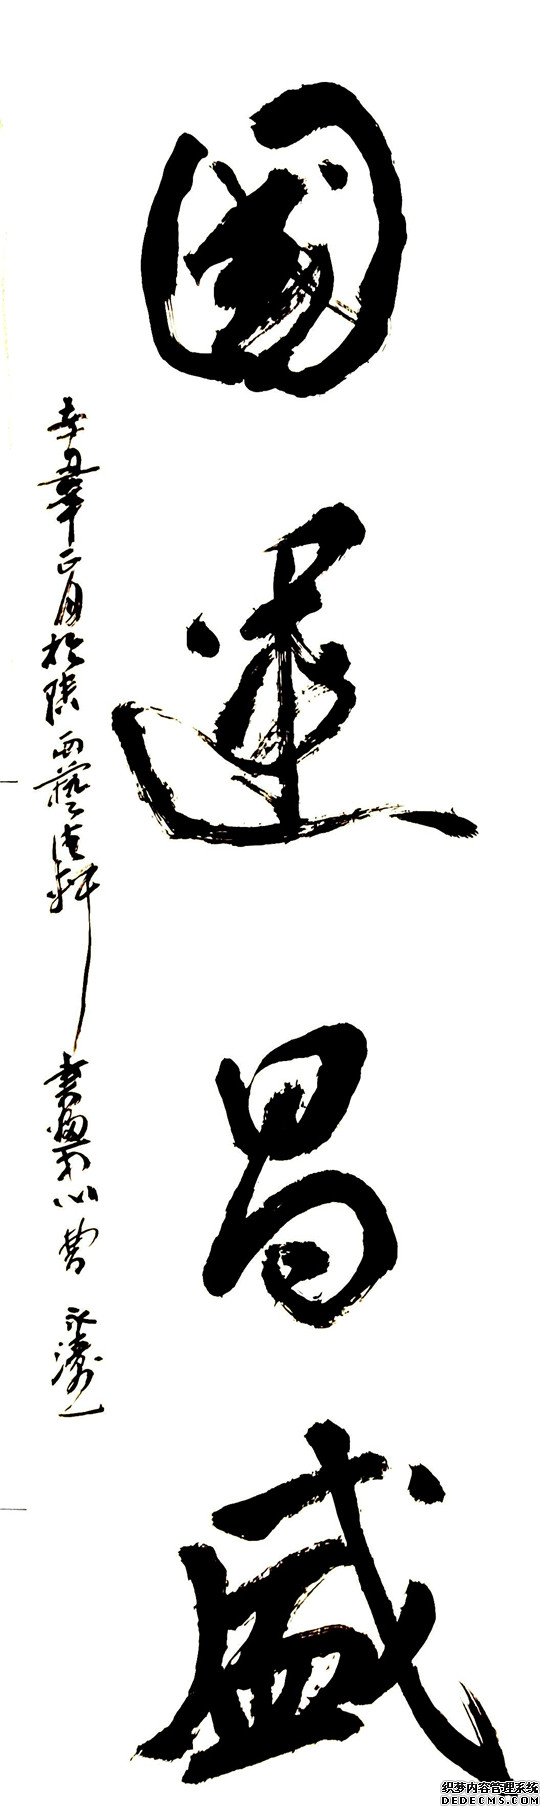 國運昌盛
辛丑年正月於陝西藝德軒
曹永濤
织梦内容管理系统
DEDECMS.COM